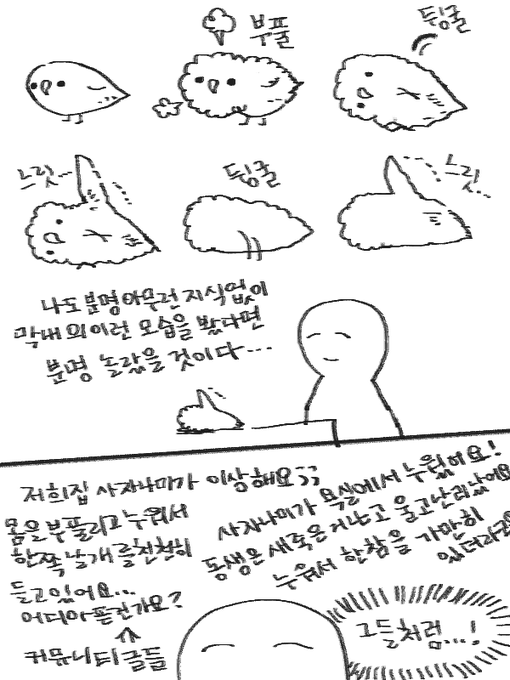 부풀
뒹굴
느릿~
뒹굴
느릿...
나도 분명 아무런 지식없이
막내의 이런 모습을 봤다면
분명 놀랐을 것이다...
저희집 사자나미가 이상해요;;
몸을 부풀리고 누워서
한쪽 날개를 천천히
들고있어요...
어디아픈건가요?
커뮤니티글들
사자나미가 욕실에서 누웠어요!
동생은 새 죽은거냐고 울고난리났어요
누워서 한참을 가만히
있더라고요
그들처럼...!